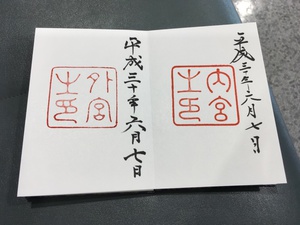 平成三十年六月七日
内宮
之印
平成三十年六月七日
外宮
之印